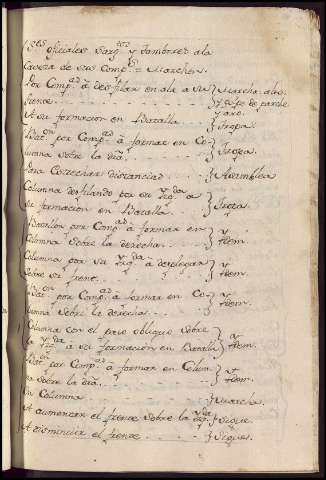 Ses oficiales Sargtos y tambores ala
Caveza de sus Comps = Marchen.
Por Compas â desfilar en ala a su } Marcha alo
frente. . . . . . y Golpe de parche
A su formacion en Batalla . . . } y aro.
Tropa.
Baton por Compas â formar en Co
lumna sobre la dra. . . . } Tropa.
Para estrechar distancias . . . } Asamblea
Columna desfilando por su yzqda a
su formacion en Batalla. . . } Tropa.
Batallon por Compas â formar en } Y
Columna sobre la derecha. . . . Idem.
Columna por su yzqda a desplegar } Y
sobre su frente. . . . . Idem.
Baton por Compas â formar en Co- } Y
lumna sobre la derecha. . . . Idem.
Columna con el paso obliquo sobre
la yzqda â su formacion en Batalla } Y Idem.
Baton por Compas â formar en Colum- } Y
na sobre la dra. . . . . Idem.
En Columna . . . . } Marcha.
A aumentar el frente sobre la yzqda } Sigue.
A disminuir el frente. . . . } Sigue.